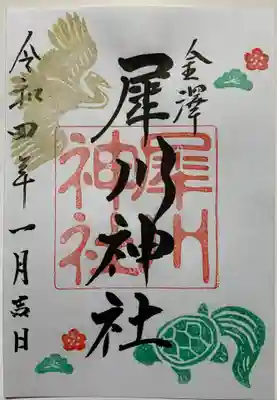 金澤
犀川神社
犀川
神社
令和四年
一月吉日